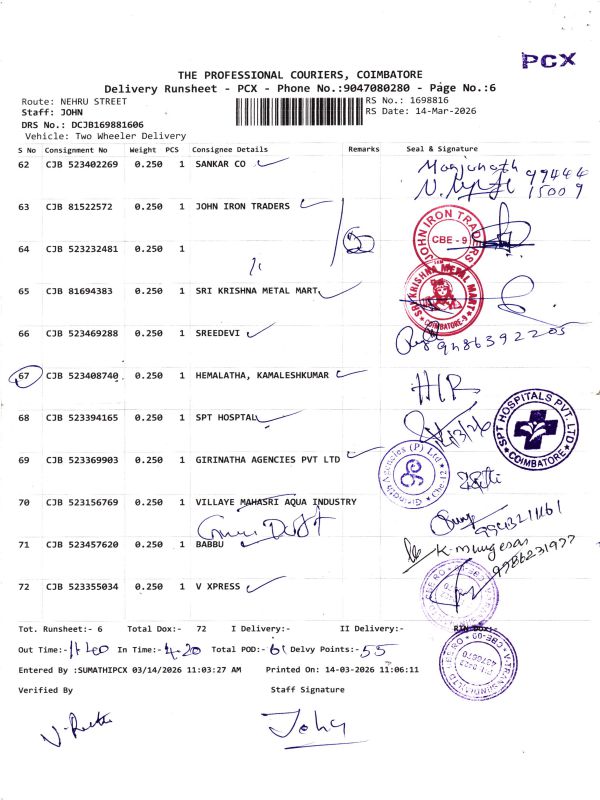 PCX
THE PROFESSIONAL COURIERS, COIMBATORE
Delivery Runsheet - PCX - Phone No.:9047080280 - Page No.:6
Route: NEHRU STREET
RS No.: 1698816
Staff: JOHN
RS Date: 14-Mar-2026
DRS No.: DCJB169881606
Vehicle: Two Wheeler Delivery
S No Consignment No Weight PCS Consignee Details Remarks Seal & Signature
62 CJB 523402269 0.250 1 SANKAR CO Manjunath 99444
15009
63 CJB 81522572 0.250 1 JOHN IRON TRADERS
JOHN IRON TRADERS
CBE - 9
64 CJB 523232481 0.250 1
65 CJB 81694383 0.250 1 SRI KRISHNA METAL MART
SRI KRISHNA METAL MART
COIMBATORE-9
66 CJB 523469288 0.250 1 SREEDEVI
9486392205
67 CJB 523408740 0.250 1 HEMALATHA, KAMALESHKUMAR
68 CJB 523394165 0.250 1 SPT HOSPTAL
SPT HOSPITALS PVT. LTD
COIMBATORE
69 CJB 523369903 0.250 1 GIRINATHA AGENCIES PVT LTD
Girinatha Agencies (P) Ltd
Cbe-12
70 CJB 523156769 0.250 1 VILLAYE MAHASRI AQUA INDUSTRY
71 CJB 523457620 0.250 1 BABBU K-Murugesan
72 CJB 523355034 0.250 1 V XPRESS
Tot. Runsheet:- 6 Total Dox:- 72 I Delivery:- II Delivery:- RTN Dox:-
Out Time:- 11.00 In Time:- 4-20 Total POD:- 61 Delvy Points:- 55
Entered By :SUMATHIPCX 03/14/2026 11:03:27 AM Printed On: 14-03-2026 11:06:11
Verified By Staff Signature
John